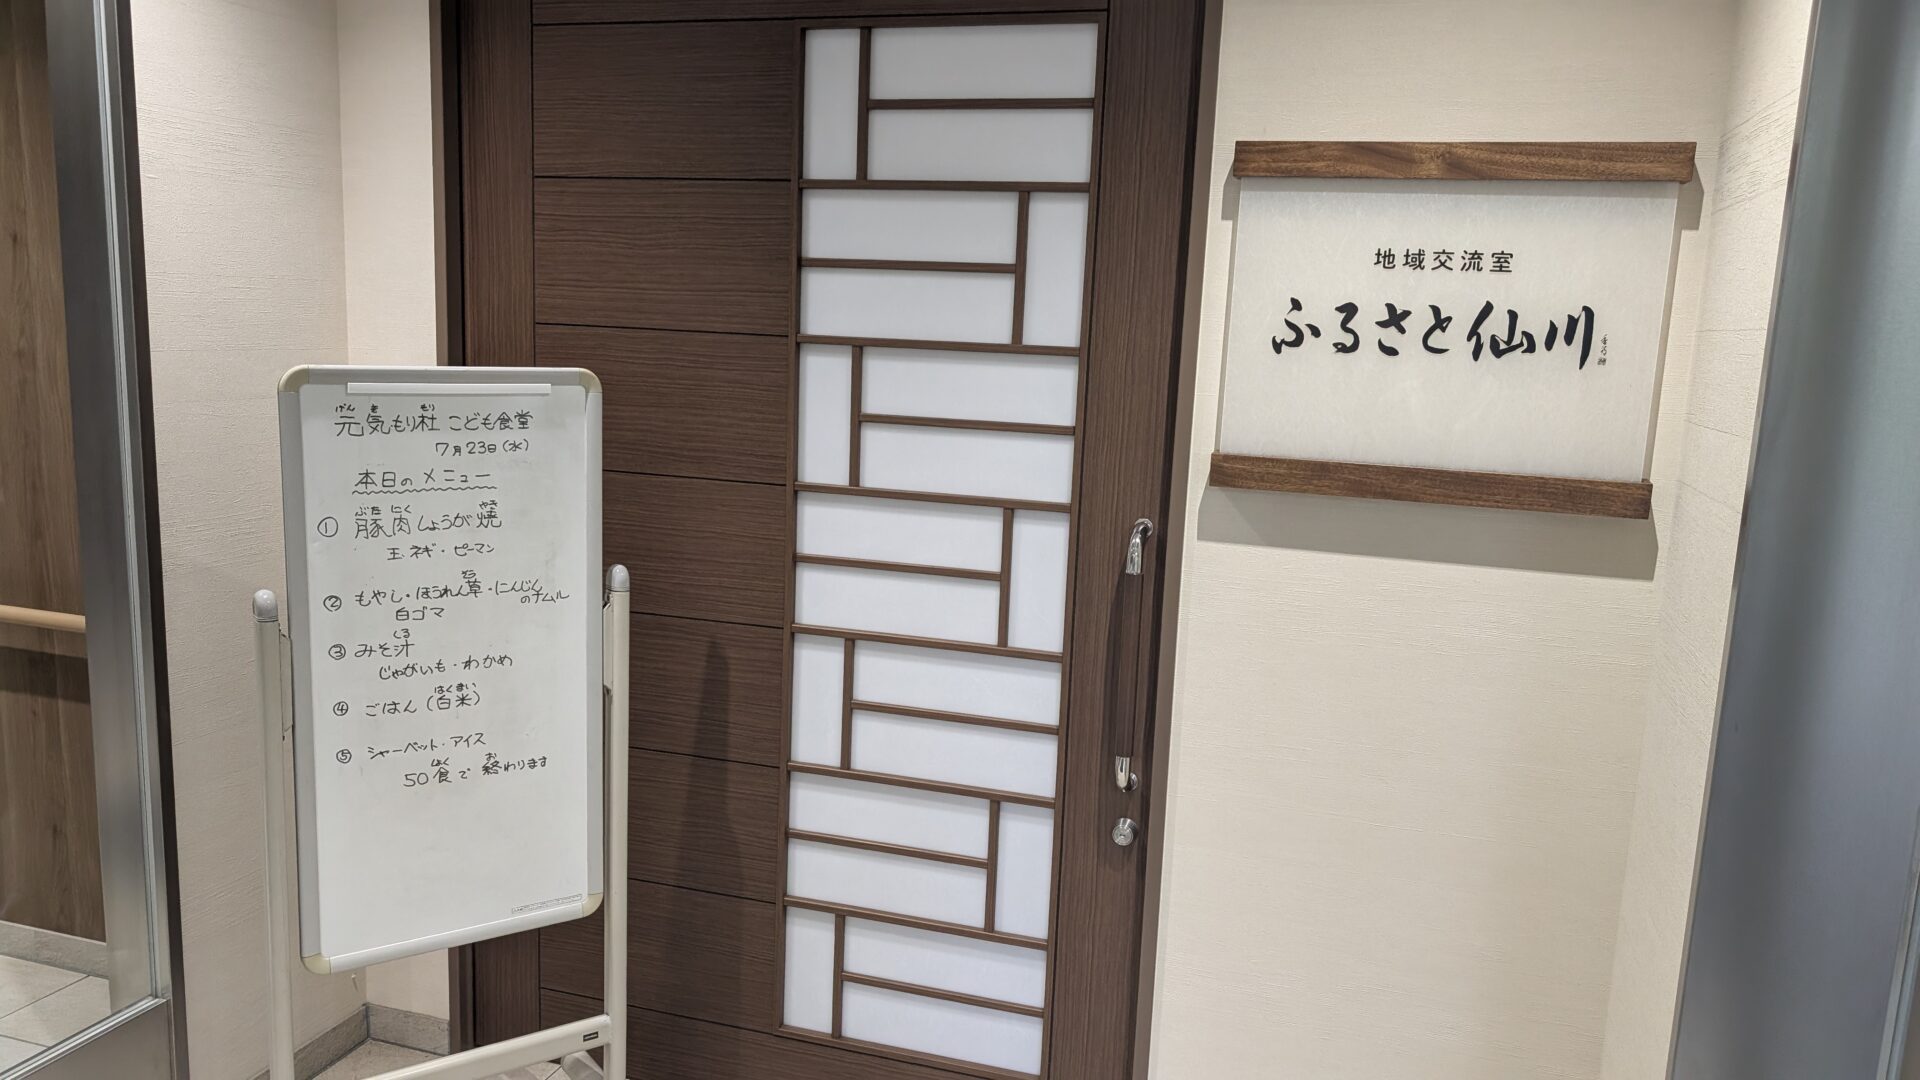 元気もり杜 こども食堂
げん き もり
7月23日(水)
本日のメニュー
① 豚肉しょうが焼
ぶた にく やき
玉ネギ・ピーマン
② もやし・ほうれん草・にんじん
そう
のナムル
白ゴマ
③ みそ汁
しる
じゃがいも・わかめ
④ ごはん(白米)
はくまい
⑤ シャーベット・アイス
50食で終わります
しょく お
地域交流室
ふるさと仙川